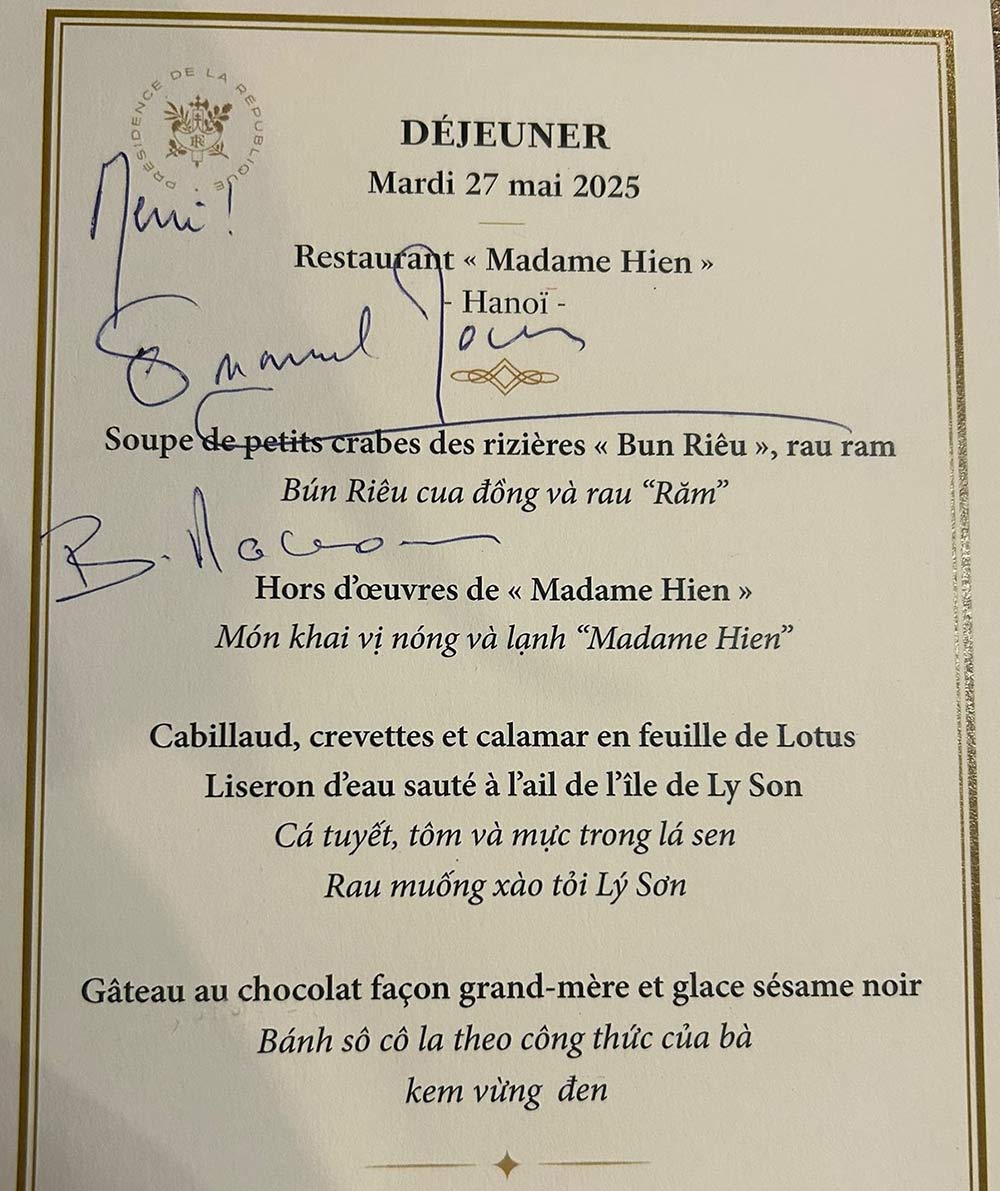 PRÉSIDENCE DE LA RÉPUBLIQUE
RF
DÉJEUNER
Mardi 27 mai 2025
Merci !
Restaurant « Madame Hien »
- Hanoï -
Emmanuel Macron
Soupe de petits crabes des rizières « Bun Riêu », rau ram
Bún Riêu cua đồng và rau “Răm”
B. Macron
Hors d’œuvres de « Madame Hien »
Món khai vị nóng và lạnh “Madame Hien”
Cabillaud, crevettes et calamar en feuille de Lotus
Liseron d’eau sauté à l’ail de l’île de Ly Son
Cá tuyết, tôm và mực trong lá sen
Rau muống xào tỏi Lý Sơn
Gâteau au chocolat façon grand-mère et glace sésame noir
Bánh sô cô la theo công thức của bà
kem vừng đen